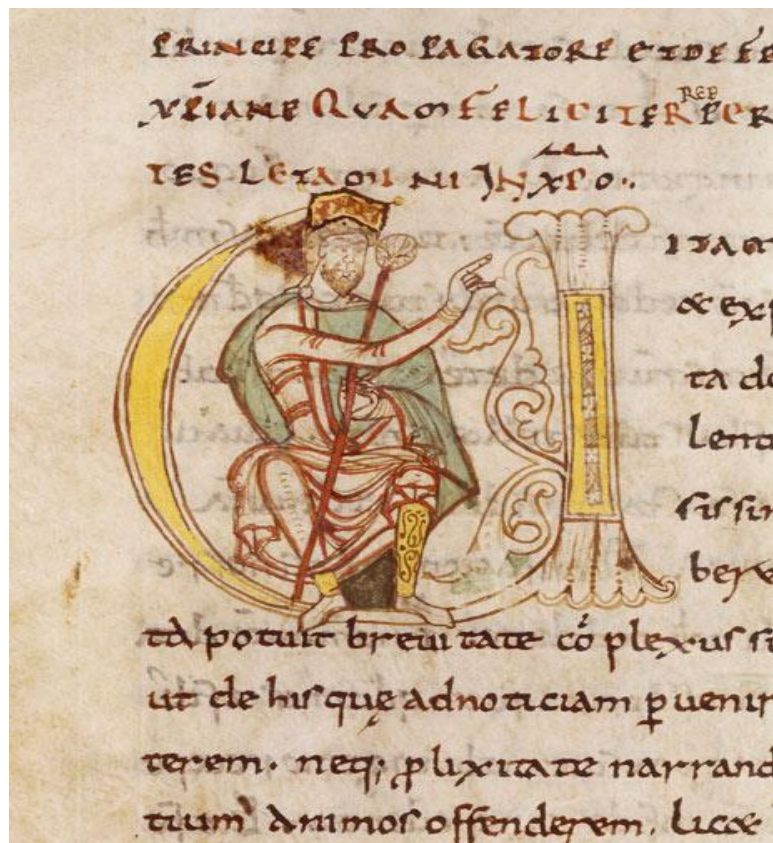 PRINCIPE PROPAGATORE ET DEFE
XPIANE QUAM FELICITER REP PER
TES LETAMINI IN XPO..
U ITAM
& exp
ta do
lent
sissim
ber
ta potuit breuitate cō plexus s
ut de his quę ad noticiam p̄ uenir
terem. neq; ꝓ lixitate narrand
tium animos offenderem. Lic&